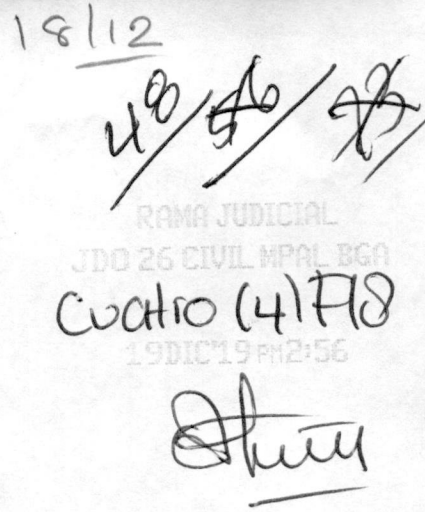 18/12
48/
RAMA JUDICIAL
JDO 26 CIVIL MPAL BGA
Cuatro (4) Fls
19DIC'19 PM 2:56